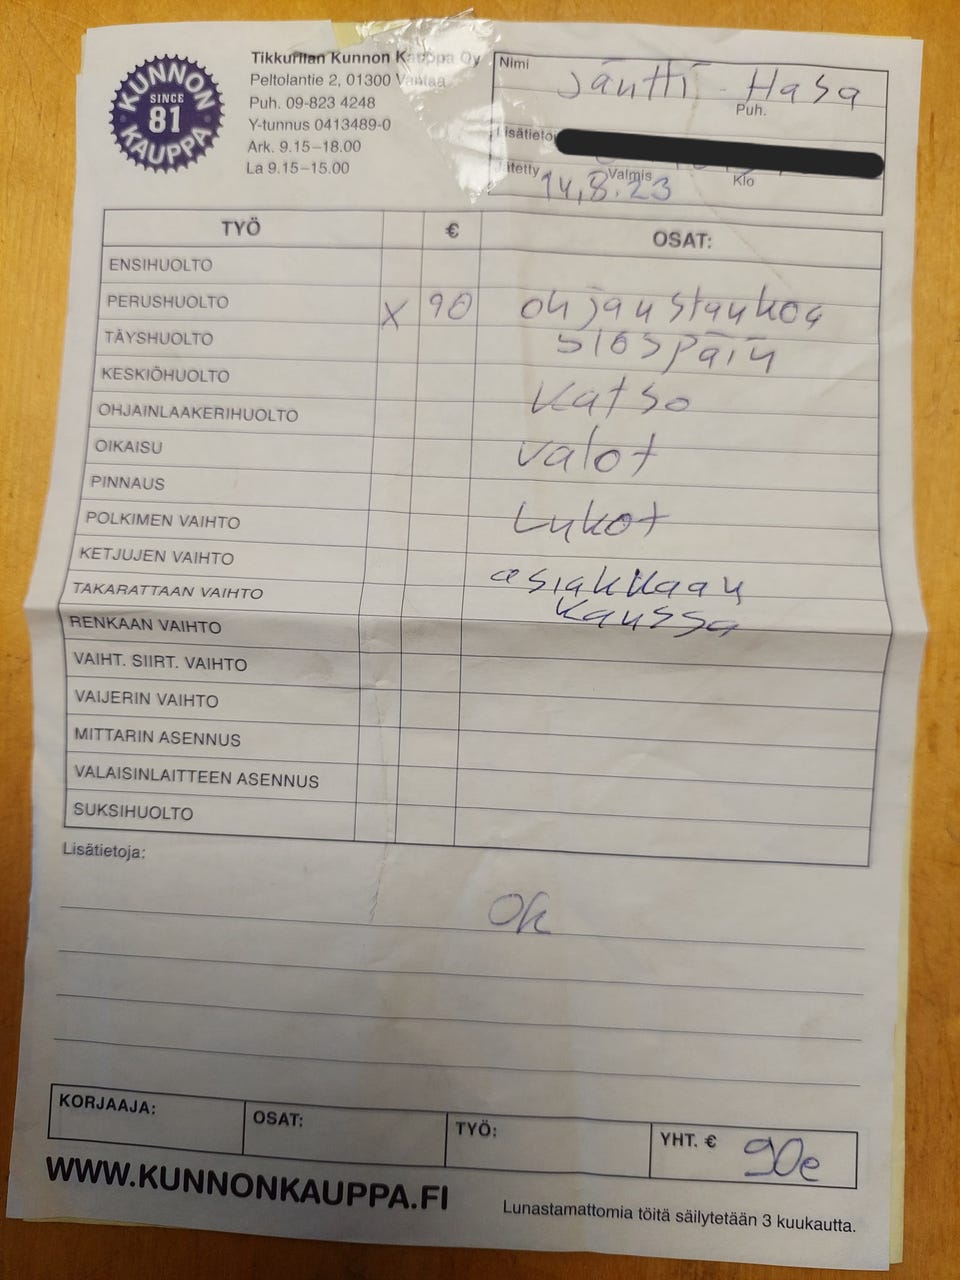 KUNNON
SINCE
81
KAUPPA
Tikkurilan Kunnon Kauppa Oy
Peltolantie 2, 01300 Vantaa
Puh. 09-823 4248
Y-tunnus 0413489-0
Ark. 9.15–18.00
La 9.15–15.00
Nimi
Jäntti - Hasa
Puh.
Lisätietoj
Jätetty Valmis Klo
14,8.23
TYÖ € OSAT:
ENSIHUOLTO
PERUSHUOLTO X 90 ohjaustankoa
TÄYSHUOLTO ulospäin
KESKIÖHUOLTO Katso
OHJAINLAAKERIHUOLTO
OIKAISU valot
PINNAUS
POLKIMEN VAIHTO Lukot
KETJUJEN VAIHTO
TAKARATTAAN VAIHTO asiakkaan
RENKAAN VAIHTO kanssa
VAIHT. SIIRT. VAIHTO
VAIJERIN VAIHTO
MITTARIN ASENNUS
VALAISINLAITTEEN ASENNUS
SUKSIHUOLTO
Lisätietoja:
Ok
KORJAAJA: OSAT: TYÖ: YHT. € 90e
WWW.KUNNONKAUPPA.FI
Lunastamattomia töitä säilytetään 3 kuukautta.